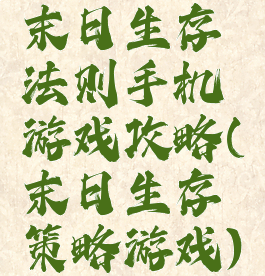 末日生存
法则手机
游戏攻略(
末日生存
策略游戏)